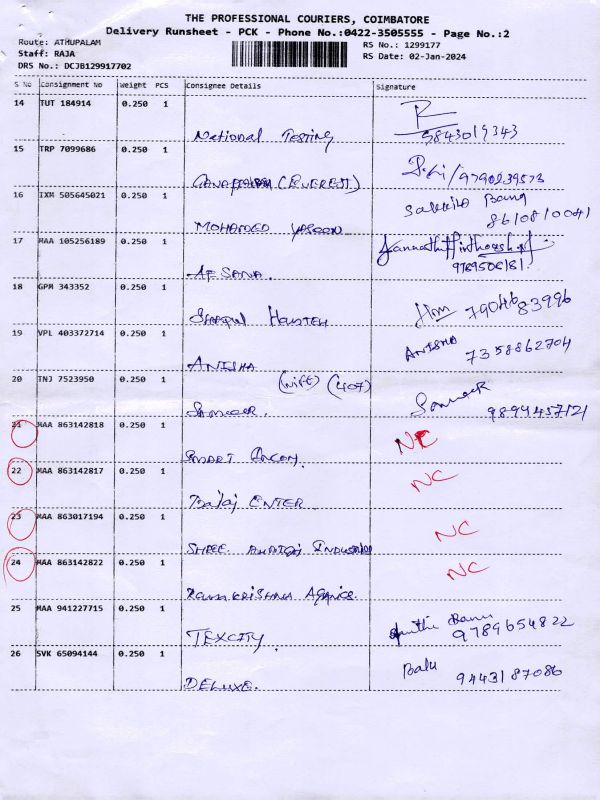 THE PROFESSIONAL COURIERS, COIMBATORE
Delivery Runsheet - PCK - Phone No.:0422-3505555 - Page No.:2
Route: ATHUPALAM
Staff: RAJA
DRS No.: DCJB129917702
RS No.: 1299177
RS Date: 02-Jan-2024
S No Consignment No Weight PCS Consignee Details Signature
14 TUT 184914 0.250 1
National Testing 9843019343
15 TRP 7099686 0.250 1
(EVEREST) 9790239573
16 IXM 505645021 0.250 1
MOHAMED YASEEN Sakkila Banu 8610810041
17 MAA 105256189 0.250 1
AFSANA.
18 GPM 343352 0.250 1
7904683996
19 VPL 403372714 0.250 1
ANISHA ANISHA 7358862704
20 TNJ 7523950 0.250 1
(wife) (407)
Sameer. Sameer 9894457121
21 MAA 863142818 0.250 1
SMART NC
22 MAA 863142817 0.250 1
Balaj ENTER NC
23 MAA 863017194 0.250 1
SHREE NC
24 MAA 863142822 0.250 1
Ramakrishna NC
25 MAA 941227715 0.250 1
TEXCITY. 9789654822
26 SVK 65094144 0.250 1
DELUXE. Balu 9443187086